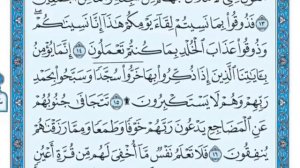 ١٣ فَذُوقُوا۟ بِمَا نَسِيتُمْ لِقَآءَ يَوْمِكُمْ هَٰذَآ إِنَّا نَسِينَٰكُمْ
وَذُوقُوا۟ عَذَابَ ٱلْخُلْدِ بِمَا كُنتُمْ تَعْمَلُونَ ١٤ إِنَّمَا يُؤْمِنُ
بِـَٔايَٰتِنَا ٱلَّذِينَ إِذَا ذُكِّرُوا۟ بِهَا خَرُّوا۟ سُجَّدًا وَسَبَّحُوا۟ بِحَمْدِ
رَبِّهِمْ وَهُمْ لَا يَسْتَكْبِرُونَ ۩ ١٥ تَتَجَافَىٰ جُنُوبُهُمْ
عَنِ ٱلْمَضَاجِعِ يَدْعُونَ رَبَّهُمْ خَوْفًا وَطَمَعًا وَمِمَّا رَزَقْنَٰهُمْ
يُنفِقُونَ ١٦ فَلَا تَعْلَمُ نَفْسٌ مَّآ أُخْفِىَ لَهُم مِّن قُرَّةِ أَعْيُنٍ